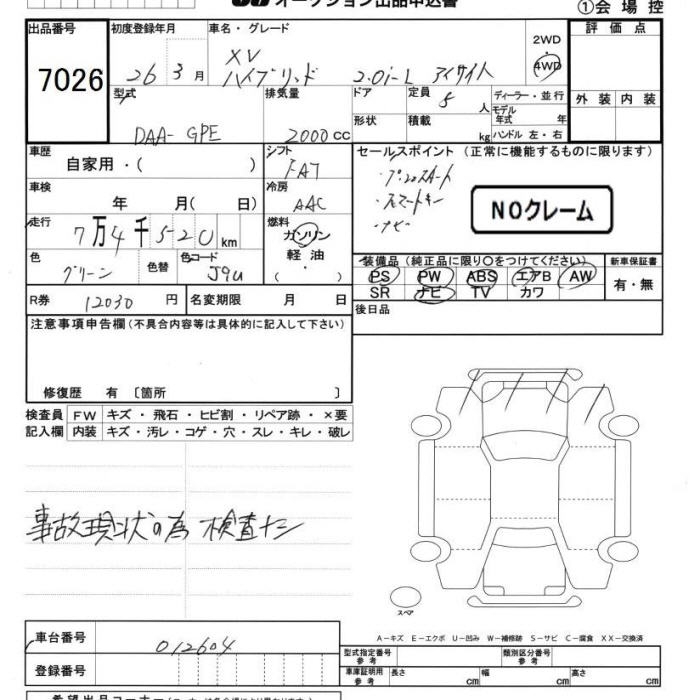 オークション出品申込書
①会場控
出品番号
7026
初度登録年月
26 3月
車名・グレード
XV
ハイブリッド 2.0i-L アイサイト
2WD
・
4WD
評価点
外装 内装
型式
DAA- GPE
排気量
2000cc
ドア
形状
定員 5人
積載 kg
ディーラー・並行
モデル年式 年
ハンドル 左・右
車歴
自家用・( )
シフト
FAT
セールスポイント (正常に機能するものに限ります)
・プッシュスタート
・スマートキー
・ナビ
NOクレーム
車検
年 月( 日)
冷房
AAC
走行
7万4千520km
燃料
ガソリン
軽油
・
( )
色
グリーン
色替
色コード
J9U
装備品 (純正品に限り○をつけてください)
PS PW ABS エアB AW
SR ナビ TV カワ
新車保証書
有・無
R券 12030円
名変期限 月 日
後日品
注意事項申告欄(不具合内容等は具体的に記入して下さい)
修復歴 有 〔箇所 〕
検査員記入欄
FW キズ・飛石・ヒビ割・リペア跡・×要
内装 キズ・汚レ・コゲ・穴・スレ・キレ・破レ
事故現状の為 検査ナシ
スペア
A－キズ E－エクボ U－凹み W－補修跡 S－サビ C－腐食 XX－交換済
車台番号
012604
登録番号
型式指定番号
参考
類別区分番号
参考
車庫証明用
参考
長さ cm 幅 cm 高さ cm
希望出品コーナー